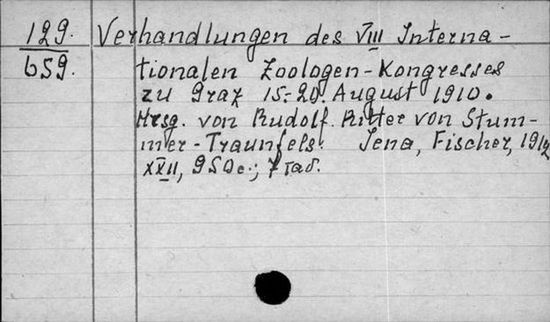 129.
659.
Verhandlungen des VIII Interna-
tionalen Zoologen-Kongresses
zu Graz 15.-20. August 1910.
Hrsg. von Rudolf Ritter von Stum-
mer-Traunfels. Jena, Fischer, 1912
XXII, 950 c.; 7 таб.